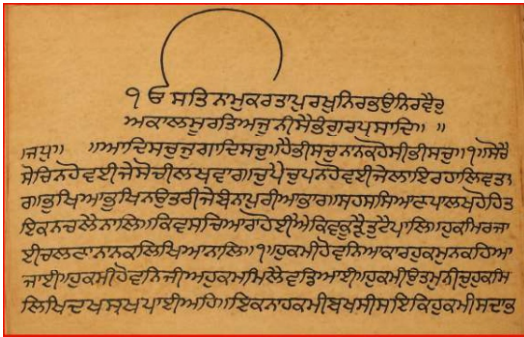 ੧ ਓ ਸਤਿ ਨਾਮੁ ਕਰਤਾ ਪੁਰਖੁ ਨਿਰਭਉ ਨਿਰਵੈਰੁ
ਅਕਾਲ ਮੂਰਤਿ ਅਜੂਨੀ ਸੈਭੰ ਗੁਰ ਪ੍ਰਸਾਦਿ ॥ ॥
॥ਜਪੁ॥ ॥ਆਦਿ ਸਚੁ ਜੁਗਾਦਿ ਸਚੁ॥ ਹੈ ਭੀ ਸਚੁ ਨਾਨਕ ਹੋਸੀ ਭੀ ਸਚੁ॥੧॥ਸੋਚੈ
ਸੋਚਿ ਨ ਹੋਵਈ ਜੇ ਸੋਚੀ ਲਖ ਵਾਰ॥ਚੁਪੈ ਚੁਪ ਨ ਹੋਵਈ ਜੇ ਲਾਇ ਰਹਾ ਲਿਵ ਤਾ
ਰ॥ਭੁਖਿਆ ਭੁਖ ਨ ਉਤਰੀ ਜੇ ਬੰਨਾ ਪੁਰੀਆ ਭਾਰ॥ਸਹਸ ਸਿਆਣਪਾ ਲਖ ਹੋਹਿ ਤ
ਇਕ ਨ ਚਲੈ ਨਾਲਿ॥ਕਿਵ ਸਚਿਆਰਾ ਹੋਈਐ ਕਿਵ ਕੂੜੈ ਤੁਟੈ ਪਾਲਿ॥ਹੁਕਮਿ ਰਜਾ
ਈ ਚਲਣਾ ਨਾਨਕ ਲਿਖਿਆ ਨਾਲਿ॥੧॥ਹੁਕਮੀ ਹੋਵਨਿ ਆਕਾਰ ਹੁਕਮੁ ਨ ਕਹਿਆ
ਜਾਈ॥ਹੁਕਮੀ ਹੋਵਨਿ ਜੀਅ ਹੁਕਮਿ ਮਿਲੈ ਵਡਿਆਈ॥ਹੁਕਮੀ ਉਤਮੁ ਨੀਚੁ ਹੁਕਮਿ
ਲਿਖਿ ਦੁਖ ਸੁਖ ਪਾਈਅਹਿ॥ਇਕਨਾ ਹੁਕਮੀ ਬਖਸੀਸ ਇਕਿ ਹੁਕਮੀ ਸਦਾ ਭ